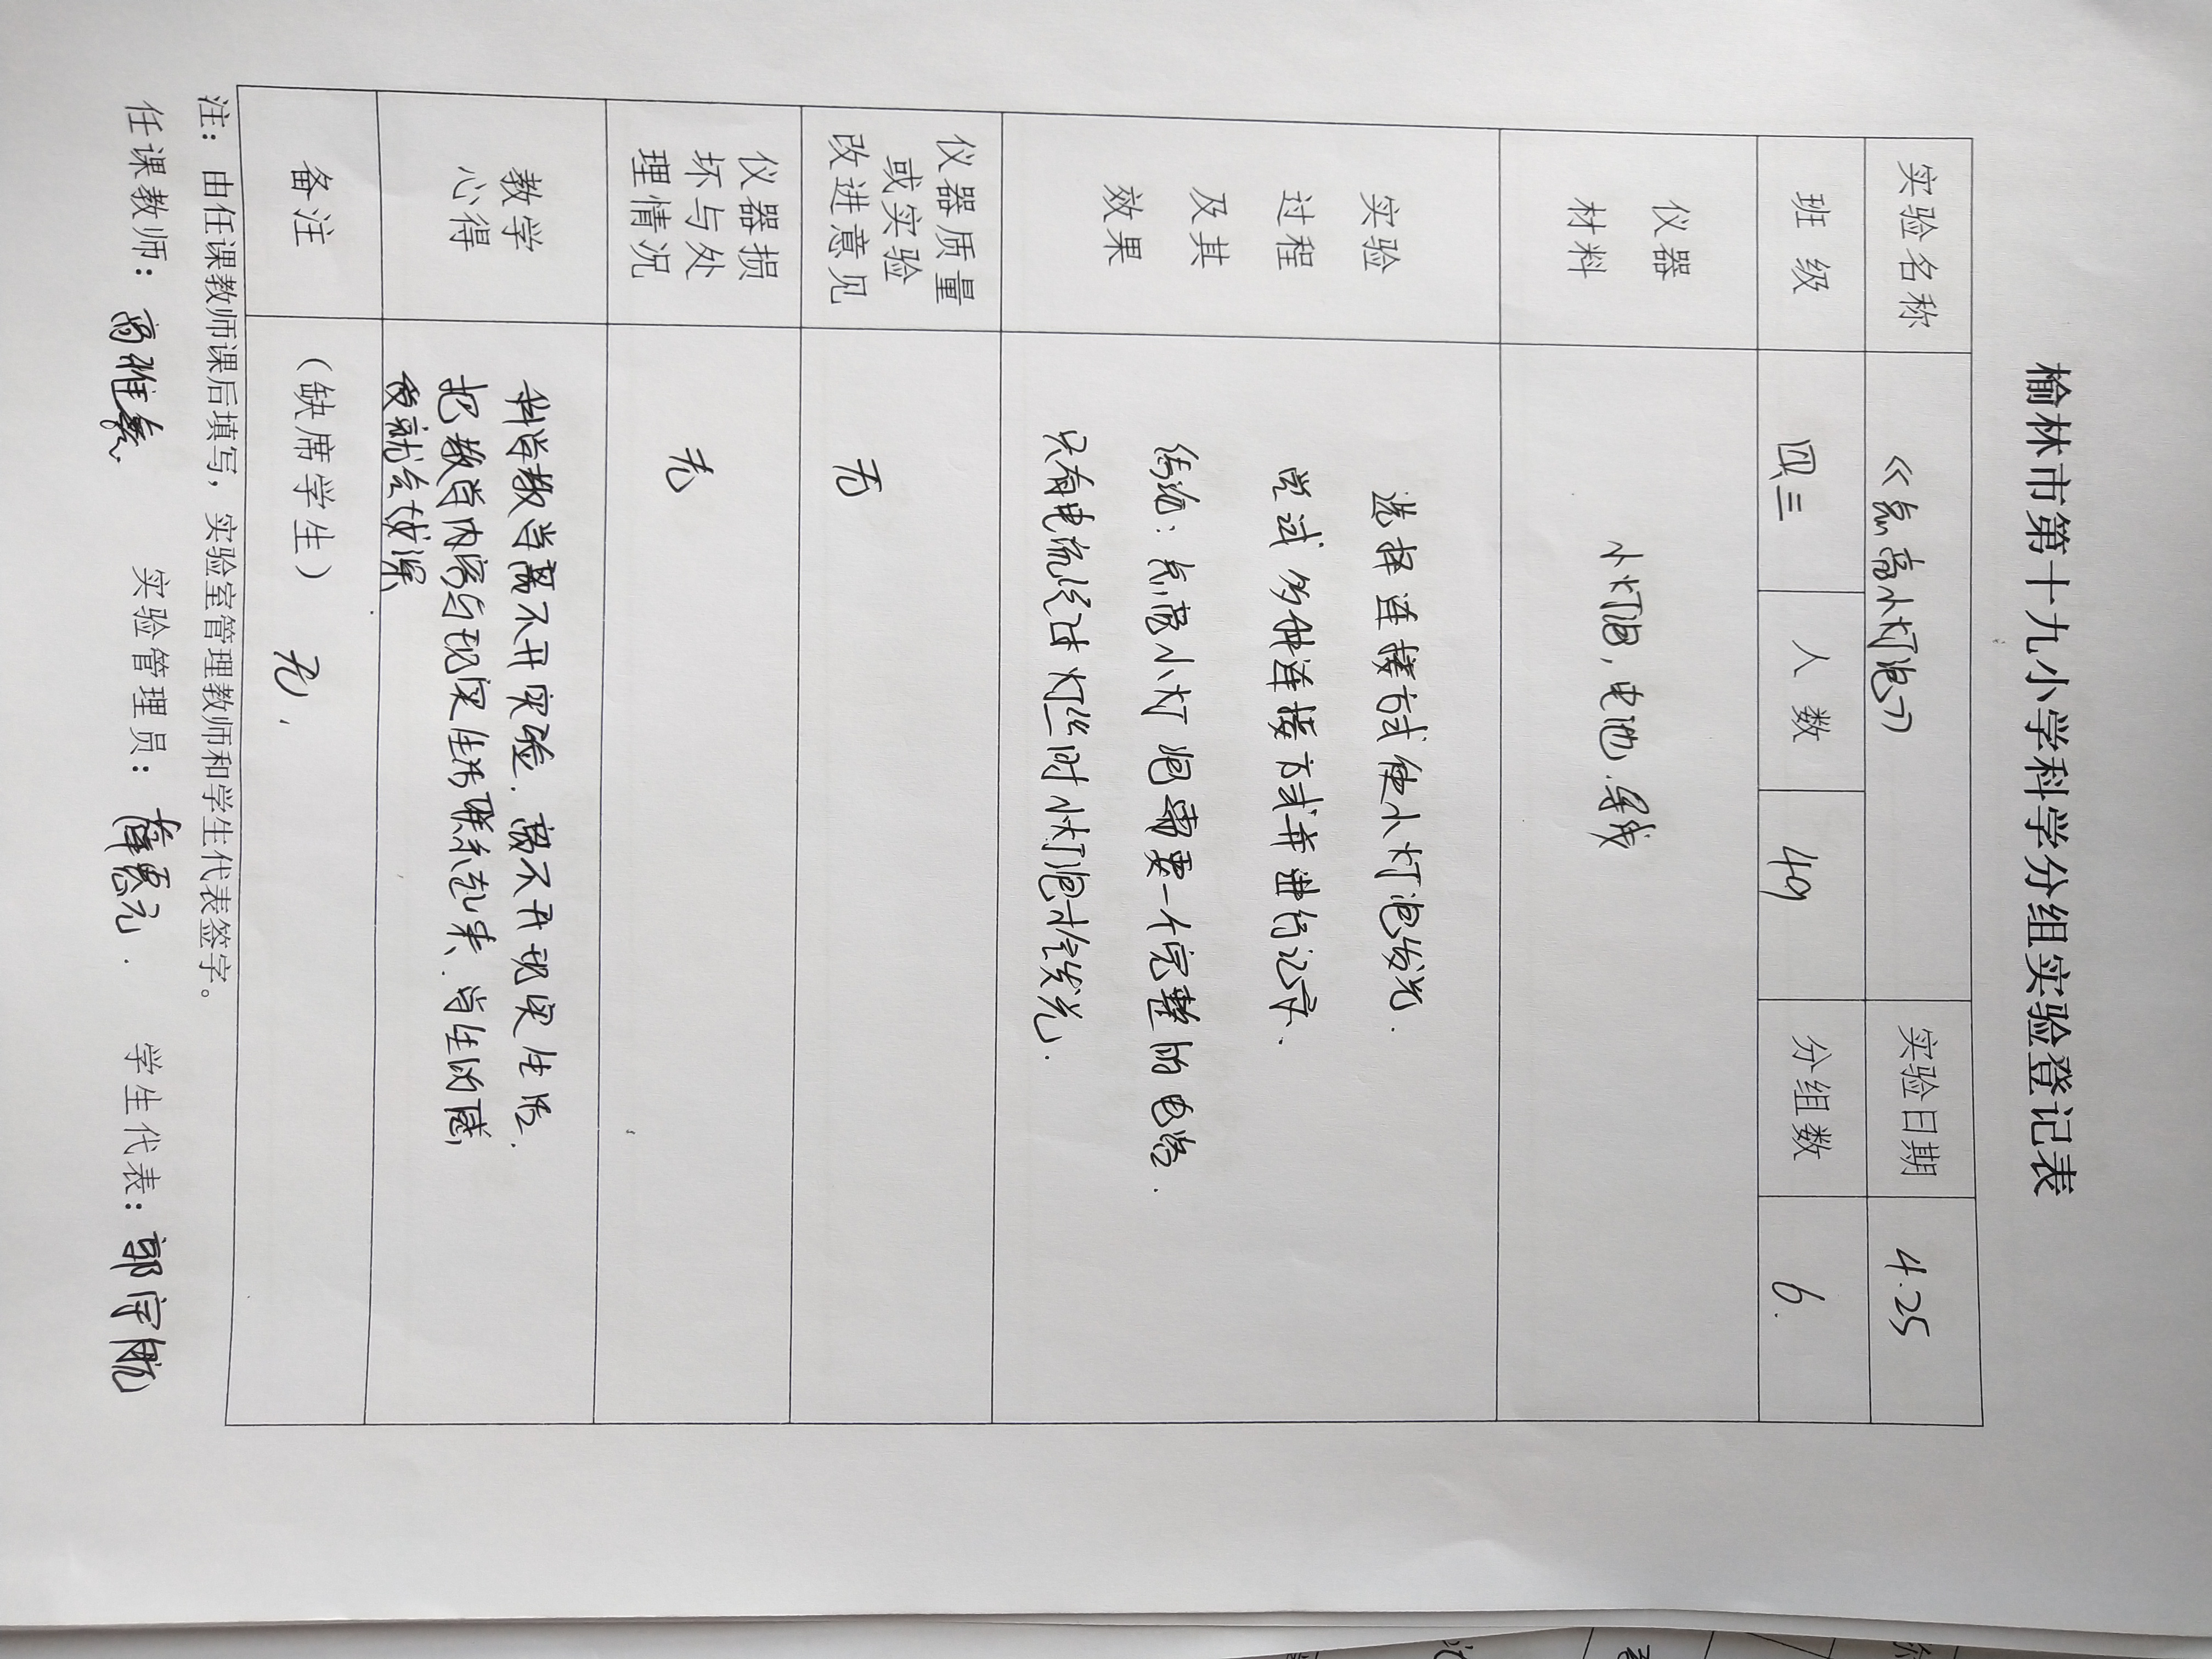 榆林市第十九小学科学分组实验登记表
实验名称 《点亮小灯泡》 实验日期 4.25
班级 四三 人数 49 分组数 6.
仪器
材料
小灯泡,电池.导线
实验
过程
及其
效果
选择连接方式使小灯泡发光.
尝试多种连接方式并进行记录.
结论:点亮小灯泡需要一个完整的电路.
只有电流经过灯丝时小灯泡才会发光.
仪器质量
或实验
改进意见
无
仪器损
坏与处
理情况
无
教学
心得
科学教学离不开实验.离不开现实生活.
把教学内容与现实生活联系起来.学生的感
受就会较深
备注 (缺席学生) 无.
注:由任课教师课后填写,实验室管理教师和学生代表签字。
任课教师: 实验管理员: 学生代表:郭宇航